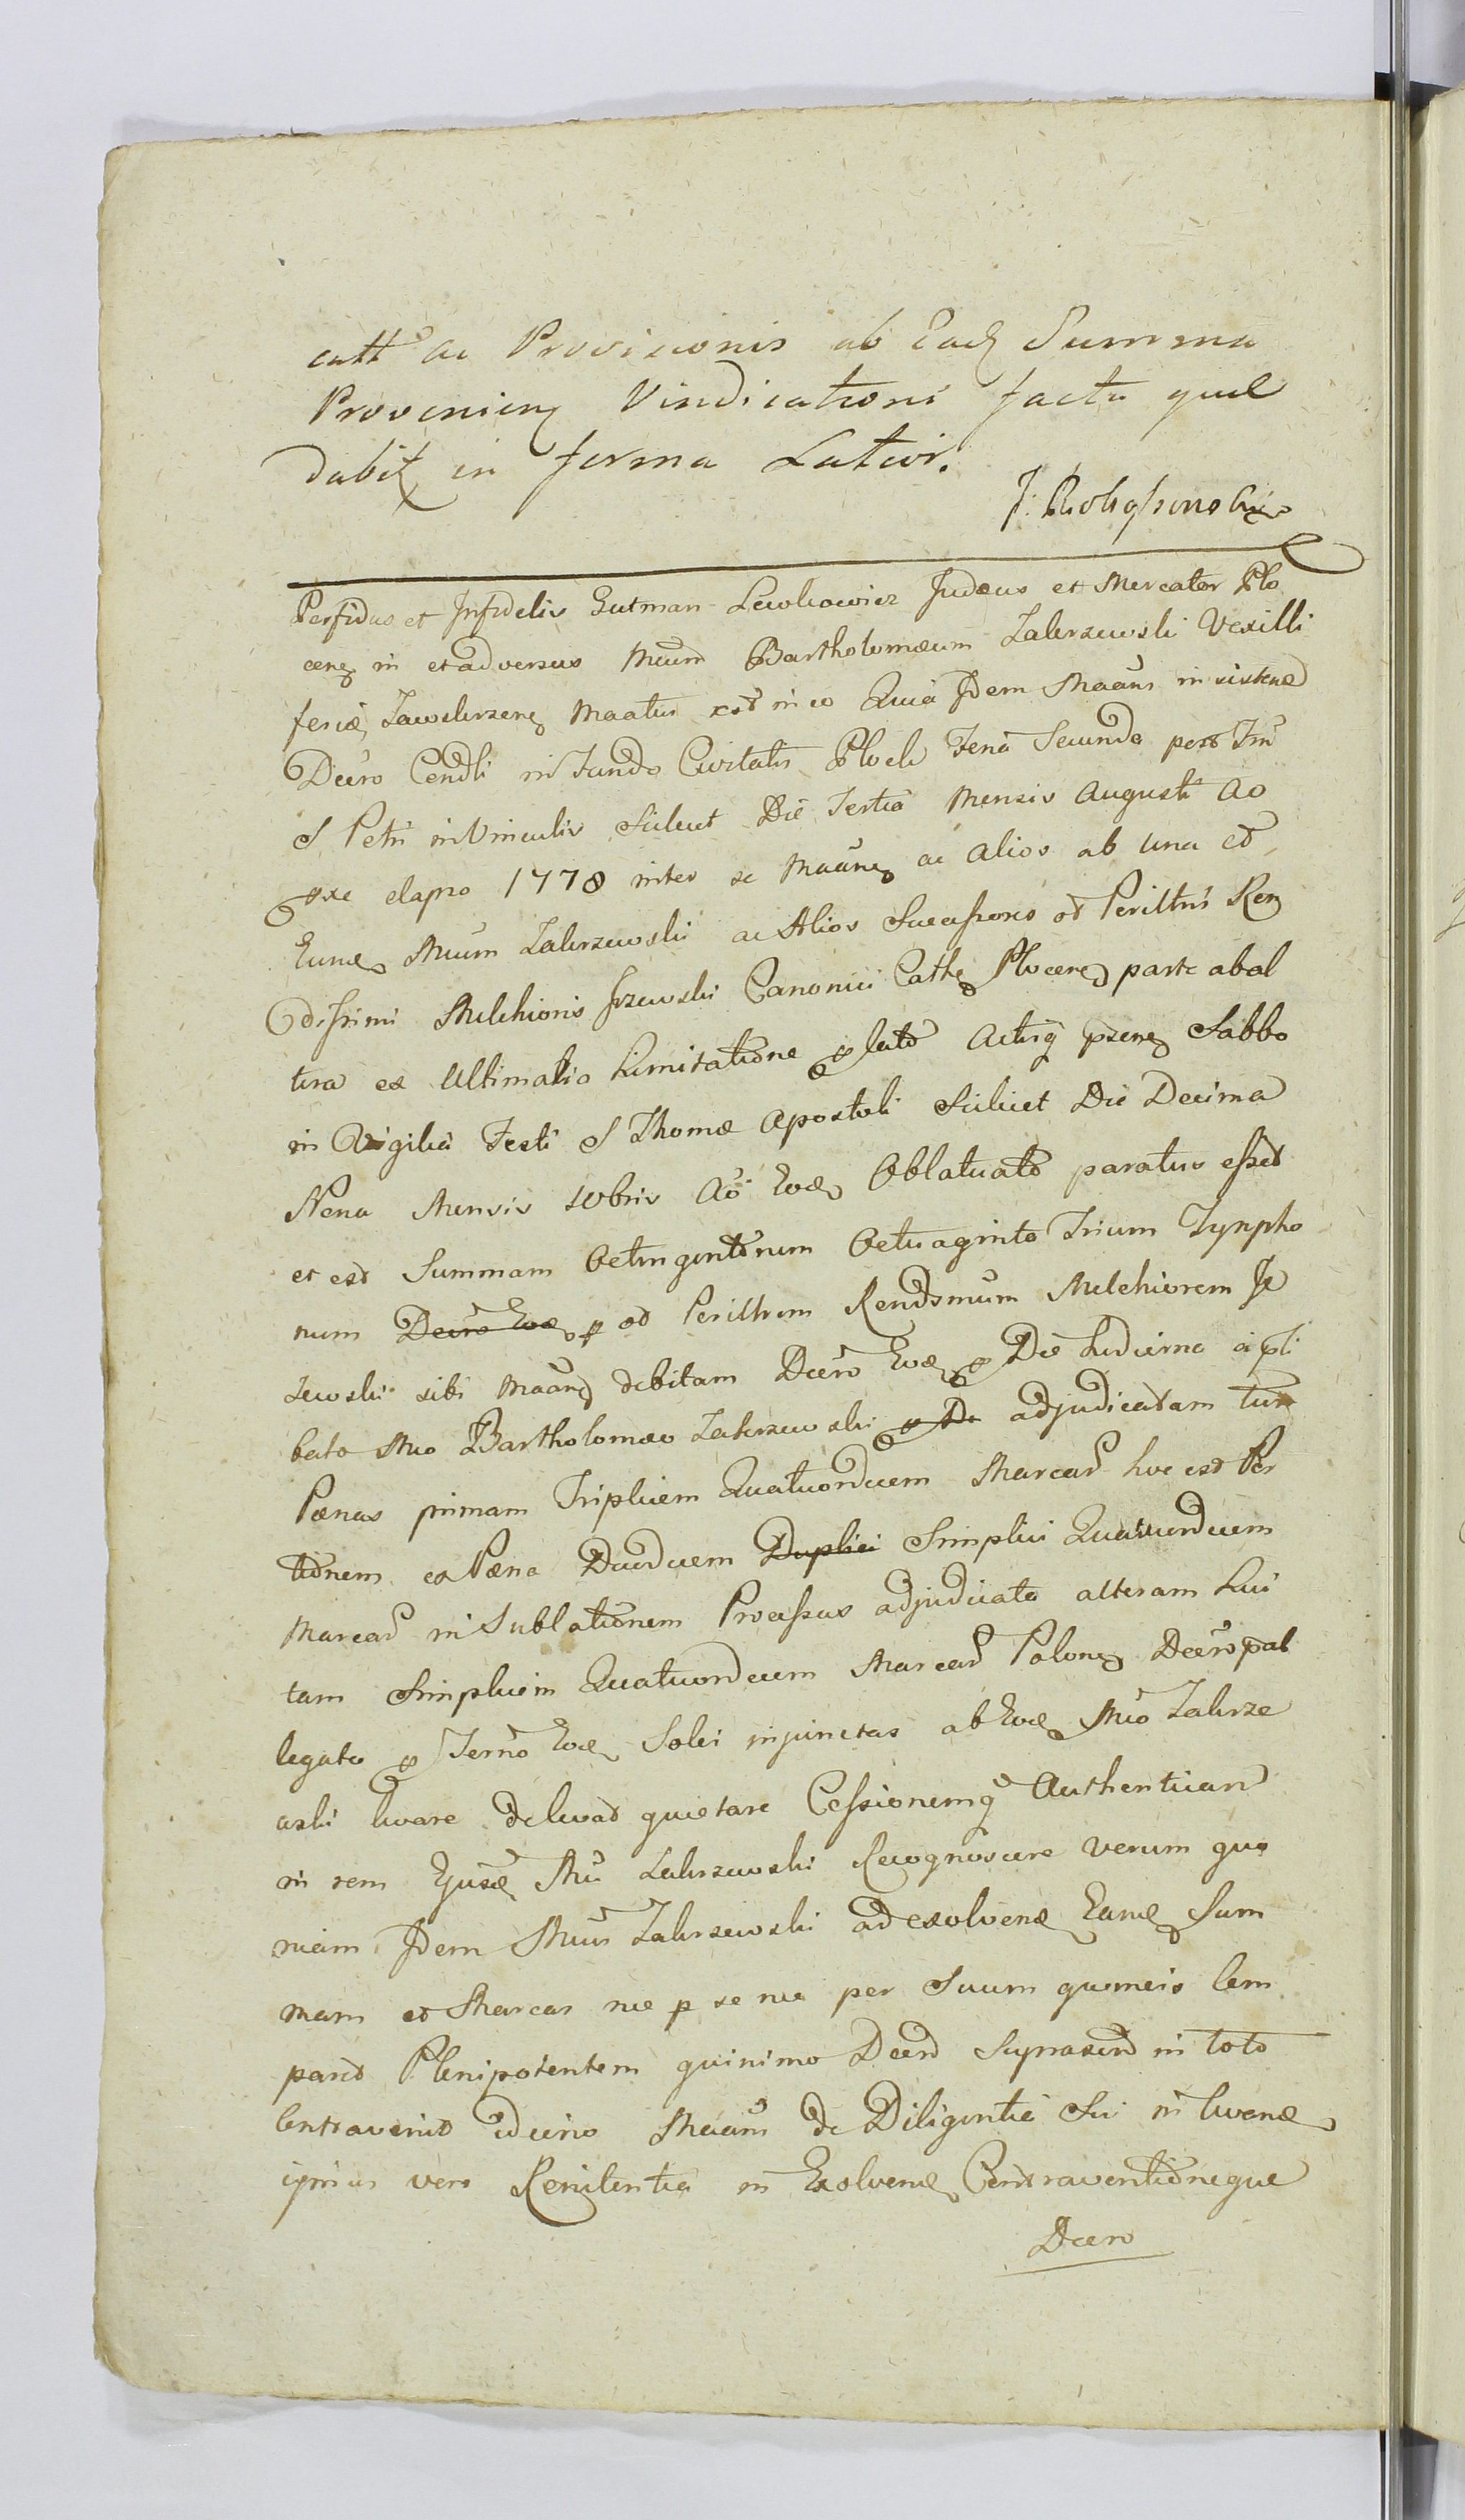 ac Provisionis ab Eadq Summa
Provenienq Vindicationi facta quae
dabitq in forma Latior.
Perfidus et Infidelis Gutman Lewkowicz Judæus et Mercator Plo
cenq in et adversus Mcum Bartholomæum Zakrzewski Vexilli
feriæ Zawskrzenq Maatur est in eo Quia Idem Maans in sistend
Decro Cendli in Fundo Civitatis Plock Feria Secunda post Fm
S Petri in Vinculis scilicet Die Tertia Mensis Augusti Ao
pxe elapso 1778 inter se Maanq ac alios ab una et
Eundq Mcum Zakrzewski ac Alios Successores od Perilltris Ren
dissimi Melchioris Jezewski Canonici Cathq Plocenq parte ab al
tera ex Ultimatis Limitatione lato Actisq psenq Sabbo
in Vigilia Festi S Thomæ Apostoli Scilicet Die Decima
Nona Mensis Xbris Ao Eodq Oblatuato paratus esset
et est Summam Octingentorum Octuaginta Trium Tynpho
num Decro Eodq p od Perilltrem Rendsmum Melchiorem Je
zewski sibi Maanti debitam Decro Eodq Die hodierna a pli
bato Mco Bartholomæo Zakrzewski De adjudicatam tum
Pænas primam Triplicem Quatuordecem Marcar hoc est Per
tionem ex Pæna Duodecem Duplici Simplici Quatuordecem
Marcar in Sublationem Processus adjudicata alteram Lui
tam Simplicem Quatuordecem Marcar Polonq Decro pal
legato Ferno Eodq Solvi injunctas ab Eodq Mco Zakrze
wski levare delevat quietare Cessionemq Authentican
in rem Ejusd Mci Zakrzewski Recognoscere verum quo
niam Idem Mcus Zakrzewski ad exolvend Eandq Sum
mam et Marcas nec p se nec per Suum quomeis Com
paruit Plenipotentem quinimo Decro Suprascrito in toto
Contravenit idcirco Maans de Diligentia Sui in levandq
ipsius vero Renitentia in Exolvendq Contraventioneque
Decro